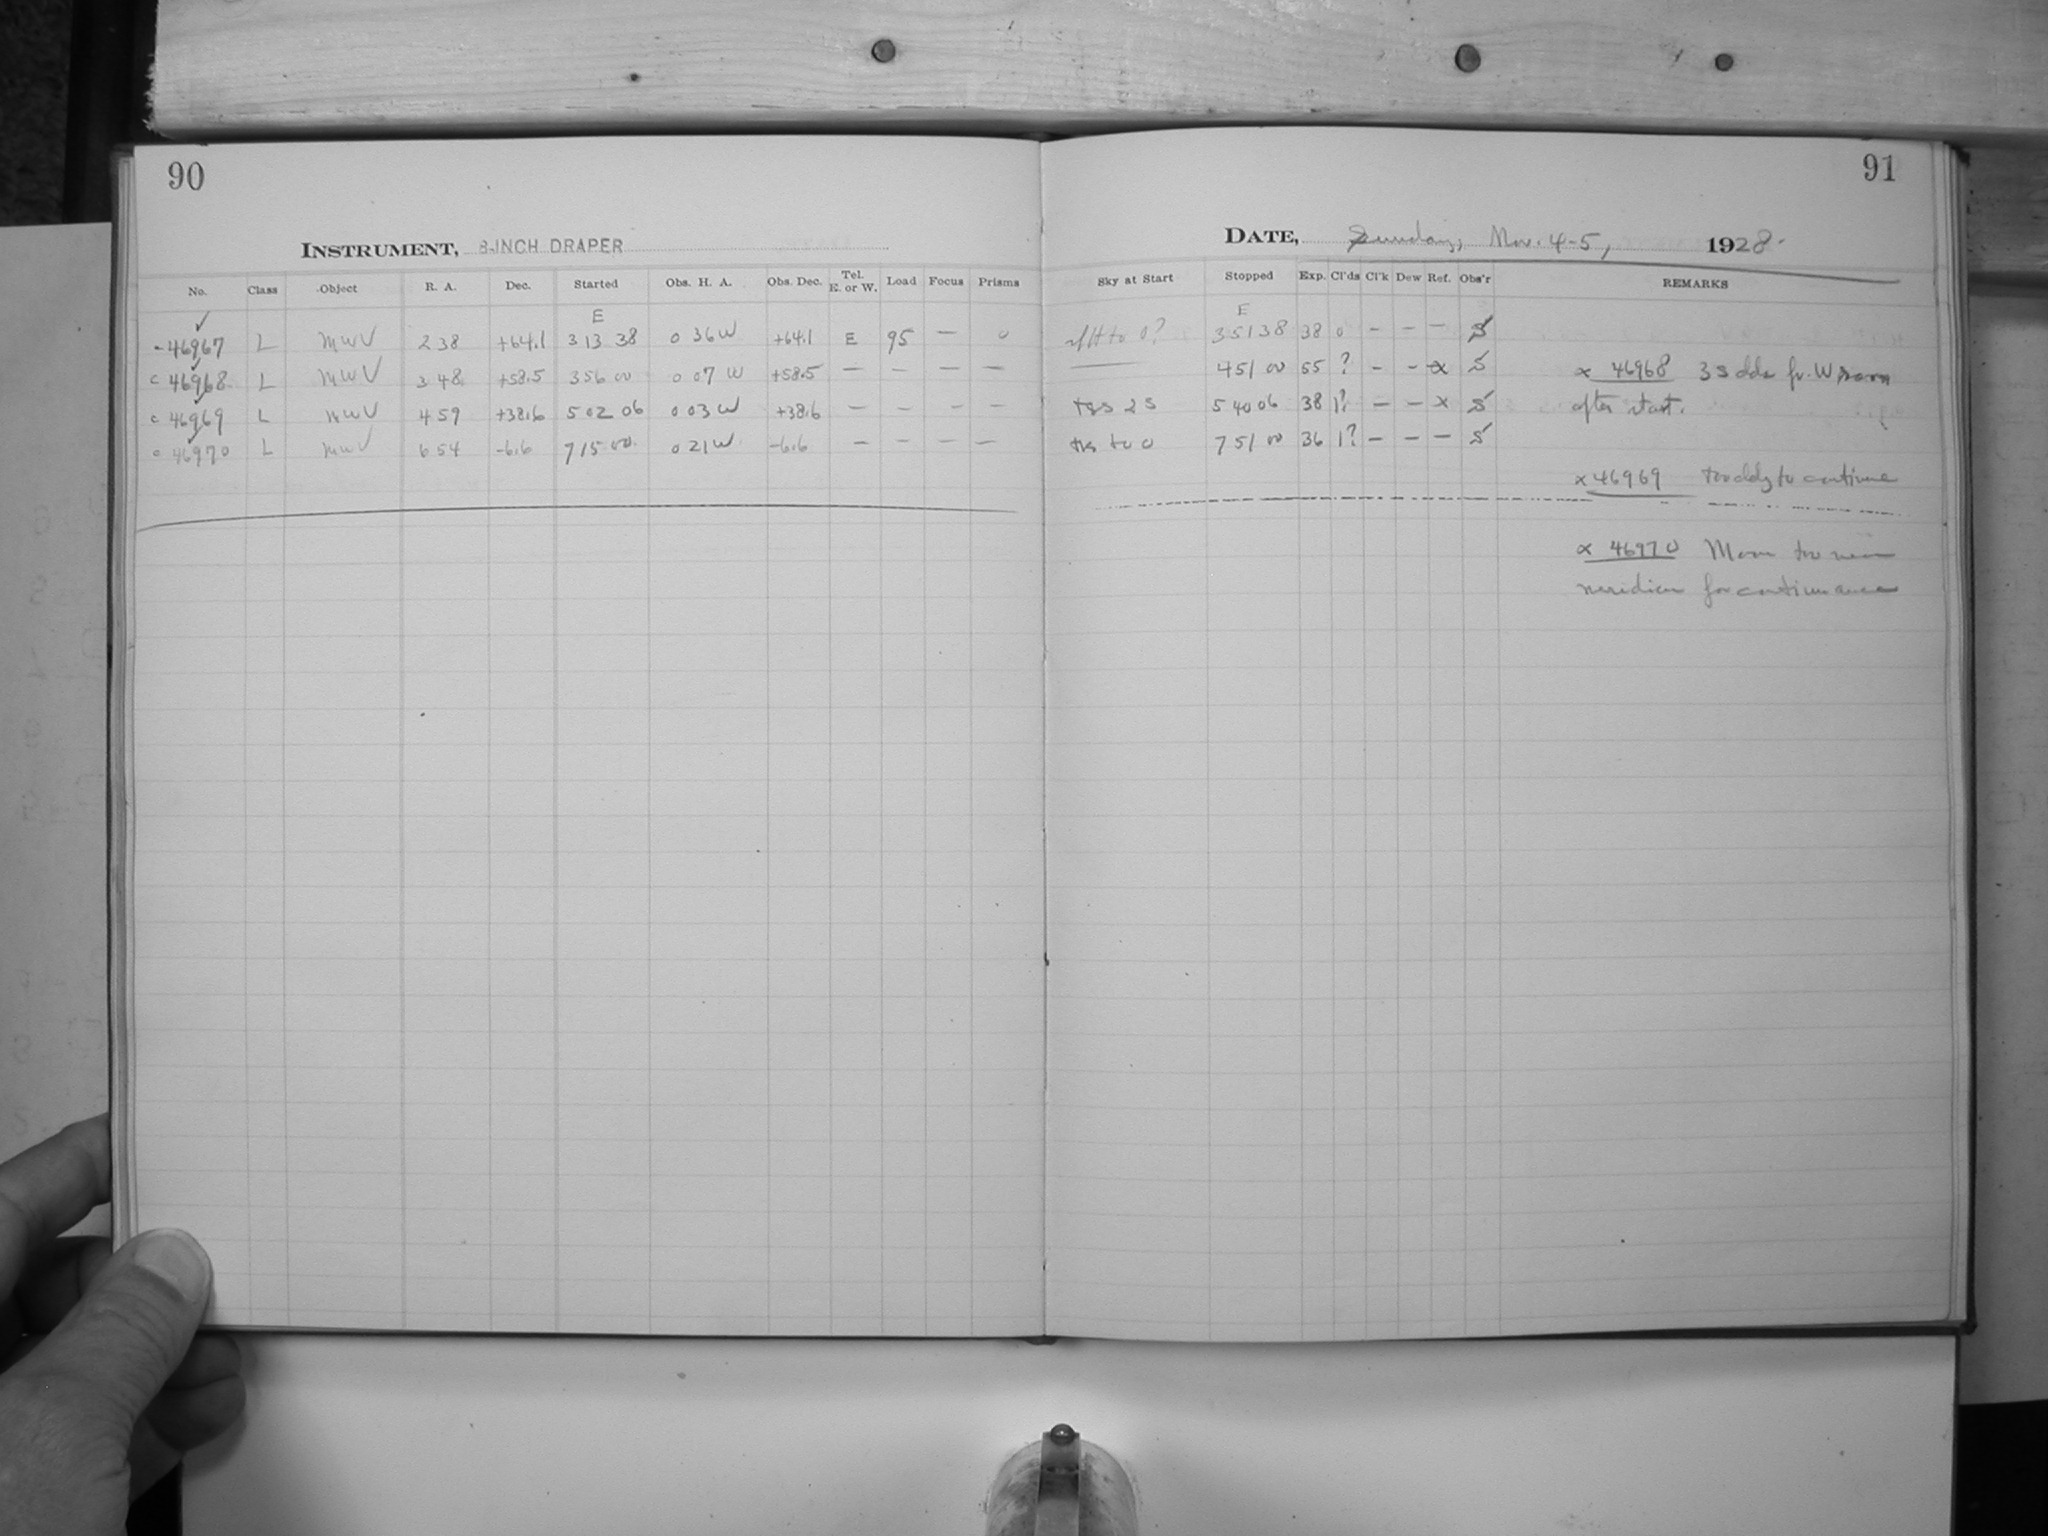 90
INSTRUMENT, 8-INCH DRAPER
No. Class Object R. A. Dec. Started Obs. H. A. Obs. Dec. Tel. E. or W. Load Focus Prisms
E
46967 L MWV 2 38 +64.1 3 13 38 0 36 W +64.1 E 95 — 0
c 46968 L MWV 3 48 +58.5 3 56 00 0 07 W +58.5 — — — —
c 46969 L MWV 4 59 +38.6 5 02 06 0 03 W +38.6 — — — —
c 46970 L MWV 6 54 -6.6 7 15 00 0 21 W -6.6 — — — —
91
DATE, Sunday, Nov. 4-5, 1928.
Sky at Start Stopped Exp. Cl'ds Cl'k Dew Ref. Obs'r REMARKS
E
to 0? 3 51 38 38 0 — — — S
—— 4 51 00 55 ? — — x S
2 S 5 40 06 38 1? — — x S
to 0 7 51 00 36 1? — — — S
x 46968 3 S clds fr. W
after start.
x 46969 too cldy to continue
x 46970 Moon too near
meridian for continuance